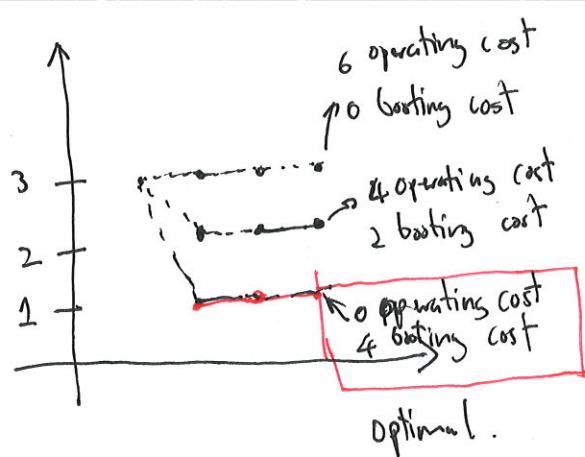 6 operating cost
0 booting cost
3
4 operating cost
2 booting cost
2
1
0 operating cost
4 booting cost
optimal.